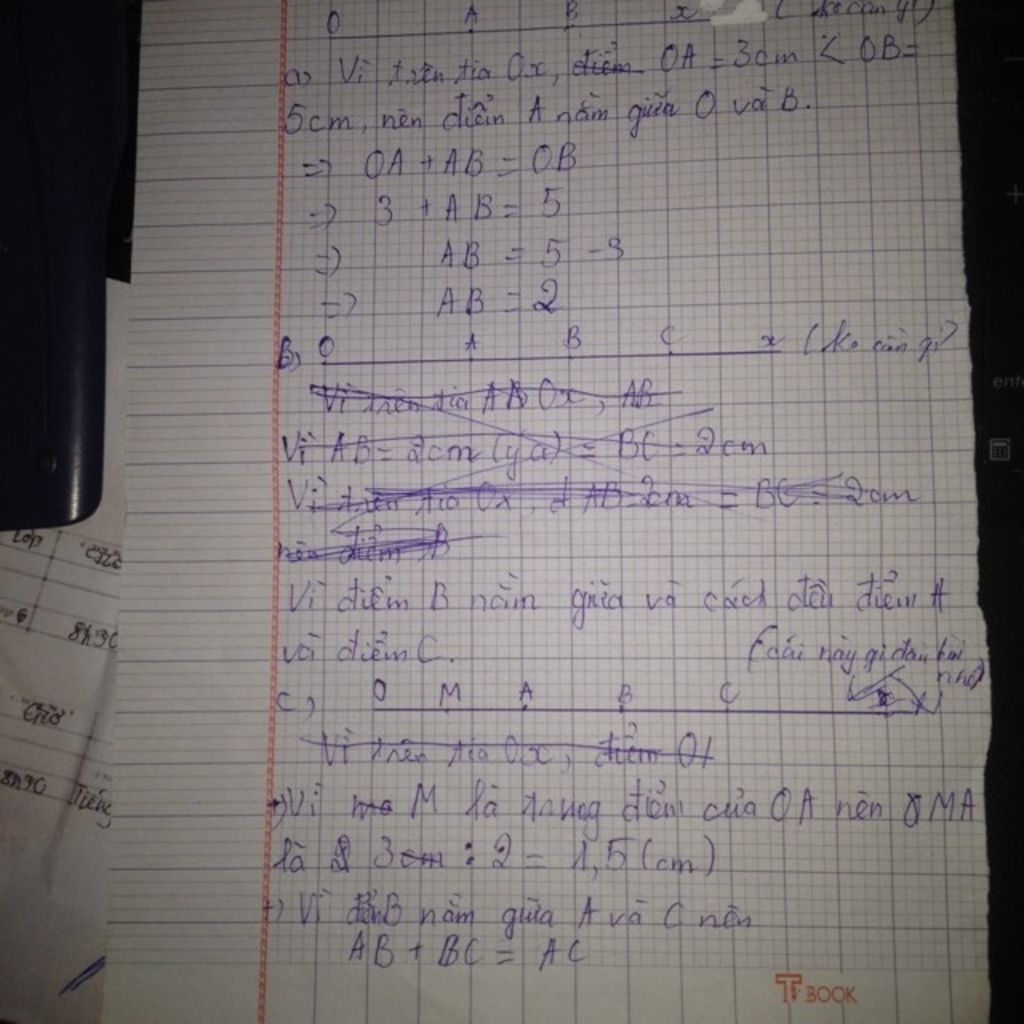 O A B x (ko cần gì)
a) Vì trên tia Ox, điểm OA = 3cm < OB =
5cm, nên điểm A nằm giữa O và B.
=> OA + AB = OB
=> 3 + AB = 5
=> AB = 5 - 3
=> AB = 2
B) O A B C x (ko cần gì)
Vì trên tia AB Ox, AB
Vì AB = 2cm (ý a) = BC = 2cm
Vì trên tia Ox, AB = 2cm = BC = 2cm
nên điểm B
Vì điểm B nằm giữa và cách đều điểm A
và điểm C.
(cái này gì đâu
nhớ)
c) O M A B C x
Vì trên tia Ox, điểm OA
+) Vì M là trung điểm của OA nên MA
là 3cm : 2 = 1,5 (cm)
+) Vì điểm B nằm giữa A và C nên
AB + BC = AC
T BOOK
Lớp
8h30
"Giờ"
8h30 Tiếng
ente